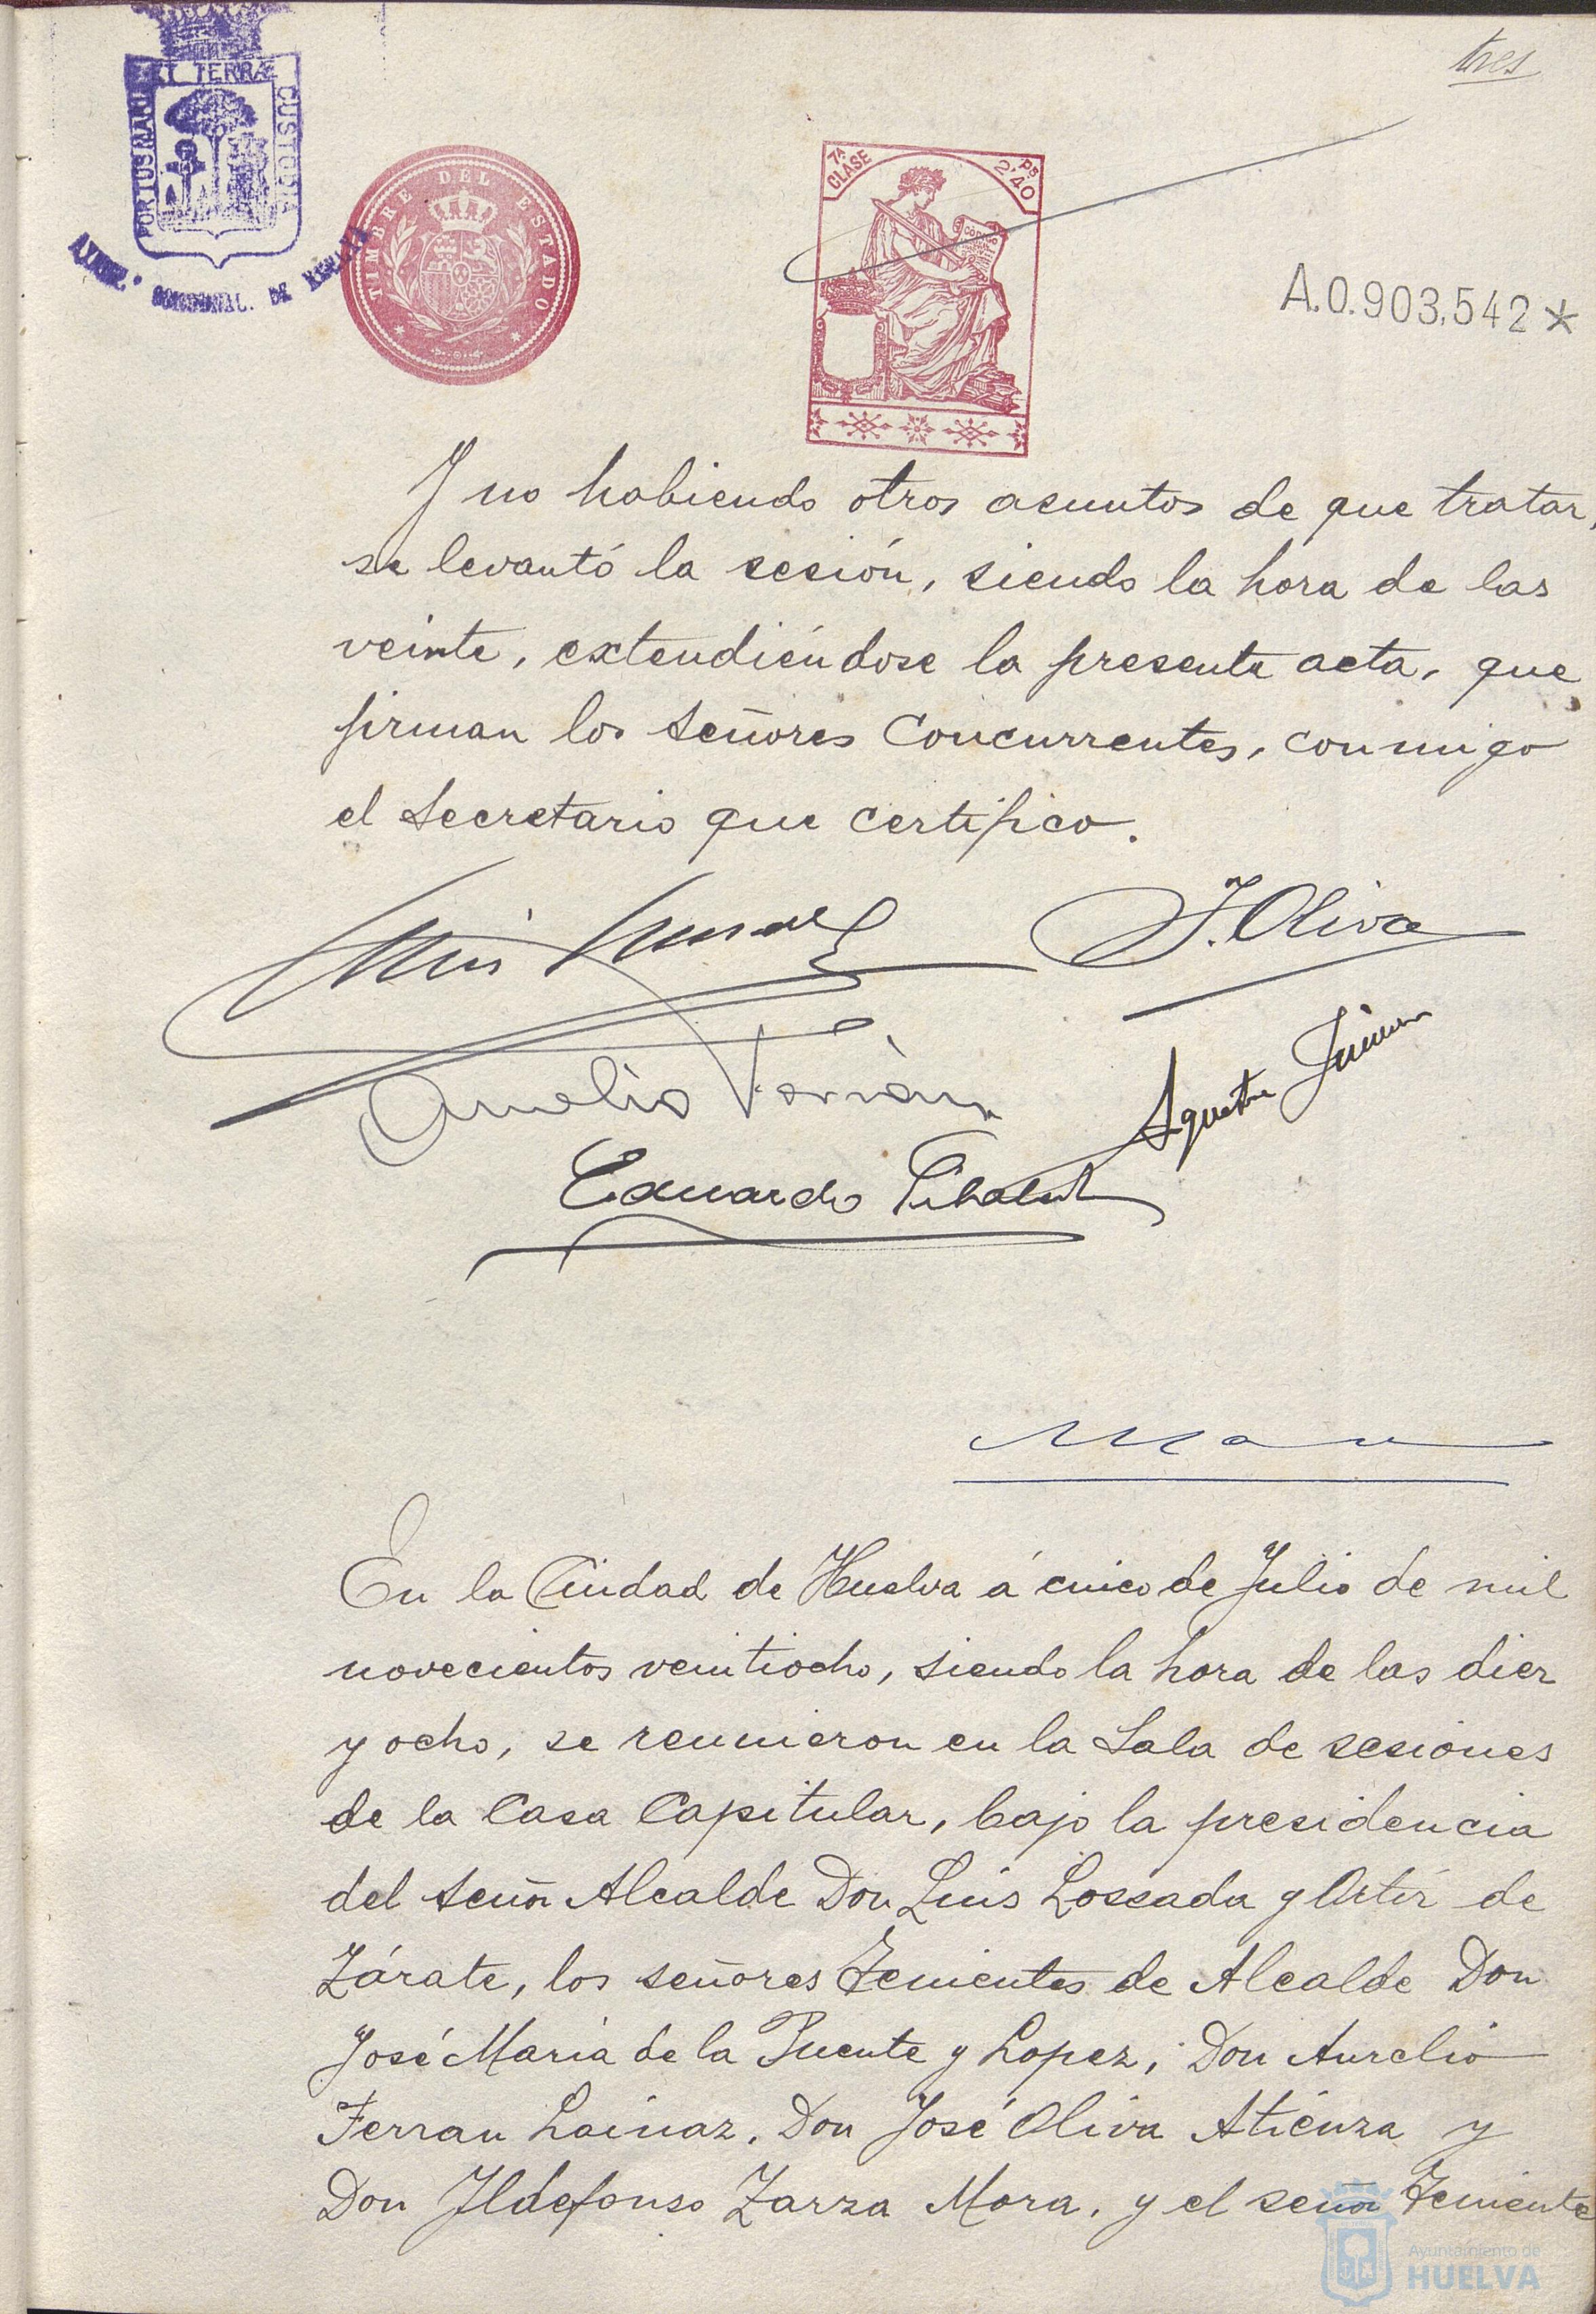 tres
PORTUS MARIS ET TERRÆ CUSTODIA
TIMBRE DEL ESTADO
7ª CLASE
Pˢ 2'40
A.0.903,542*
Y no habiendo otros asuntos de que tratar,
se levantó la sesión, siendo la hora de las
veinte, extendiéndose la presente acta, que
firman los Señores Concurrentes, conmigo
el Secretario que certifico.
J. Oliva
Aurelio Ferrán
Eduardo
En la Ciudad de Huelva á cinco de Julio de mil
novecientos veintiocho, siendo la hora de las diez
y ocho, se reunieron en la Sala de sesiones
de la Casa Capitular, bajo la presidencia
del Señor Alcalde Don Luis Lossada y Ortiz de
Zárate, los señores Tenientes de Alcalde Don
José María de la Puente y Lopez, Don Aurelio
Ferran Lainaz, Don José Oliva Atiénza y
Don Ildefonso Zarza Mora, y el señor Teniente
Ayuntamiento de
HUELVA